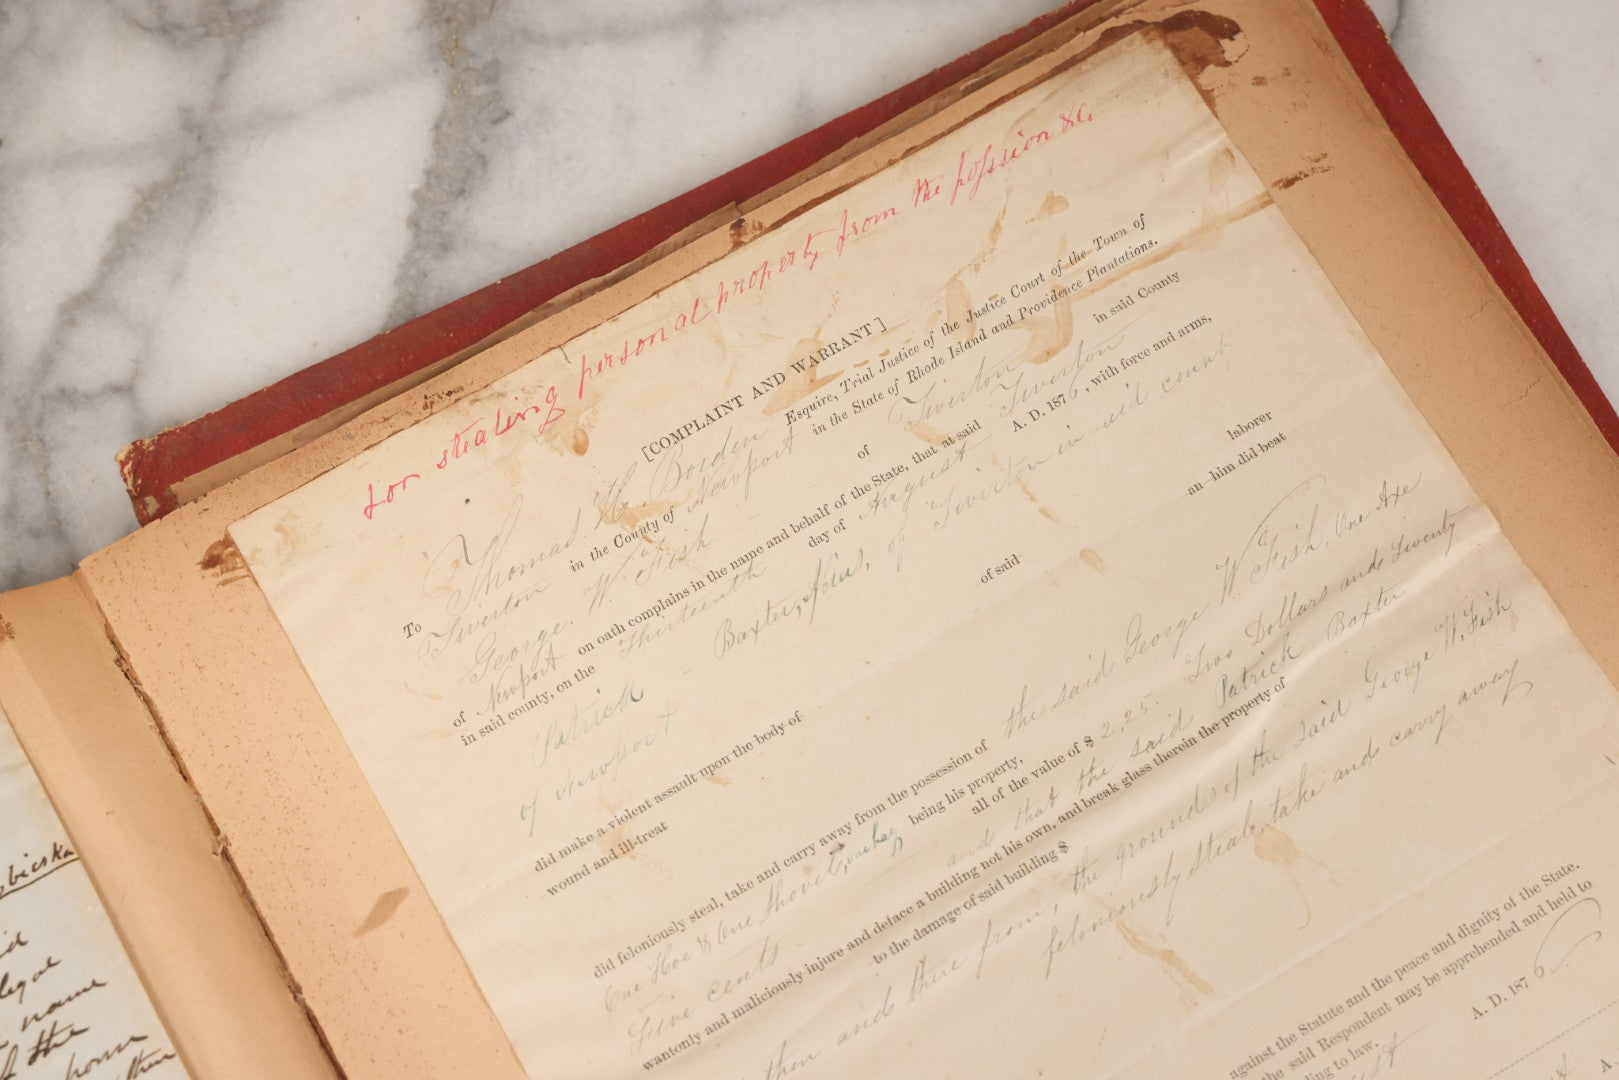 for stealing personal property from the possion &c.
[COMPLAINT AND WARRANT]
To Thomas H. Borden Esquire, Trial Justice of the Justice Court of the Town of
Tiverton in the County of Newport in the State of Rhode Island and Providence Plantations.
George W. Fish of Tiverton in said County
of Newport on oath complains in the name and behalf of the State, that at said Tiverton
in said county, on the Thirteenth day of August A. D. 1876, with force and arms,
Patrick - Baxter, of Tiverton in said county
of Newport laborer
an him did beat
did make a violent assault upon the body of of said
wound and ill-treat
did feloniously steal, take and carry away from the possession of the said George W Fish, One Axe
One Hoe & One Shovel, being his property, all of the value of $ 2.25. Two Dollars and Twenty
Five cents and that the said Patrick Baxter
wantonly and maliciously injure and deface a building not his own, and break glass therein the property of
to the damage of said building $
then and there from, the grounds of the said George W. Fish
feloniously steal, take and carry away
against the Statute and the peace and dignity of the State.
the said Respondent may be apprehended and held to
A. D. 1876
legal
name
the